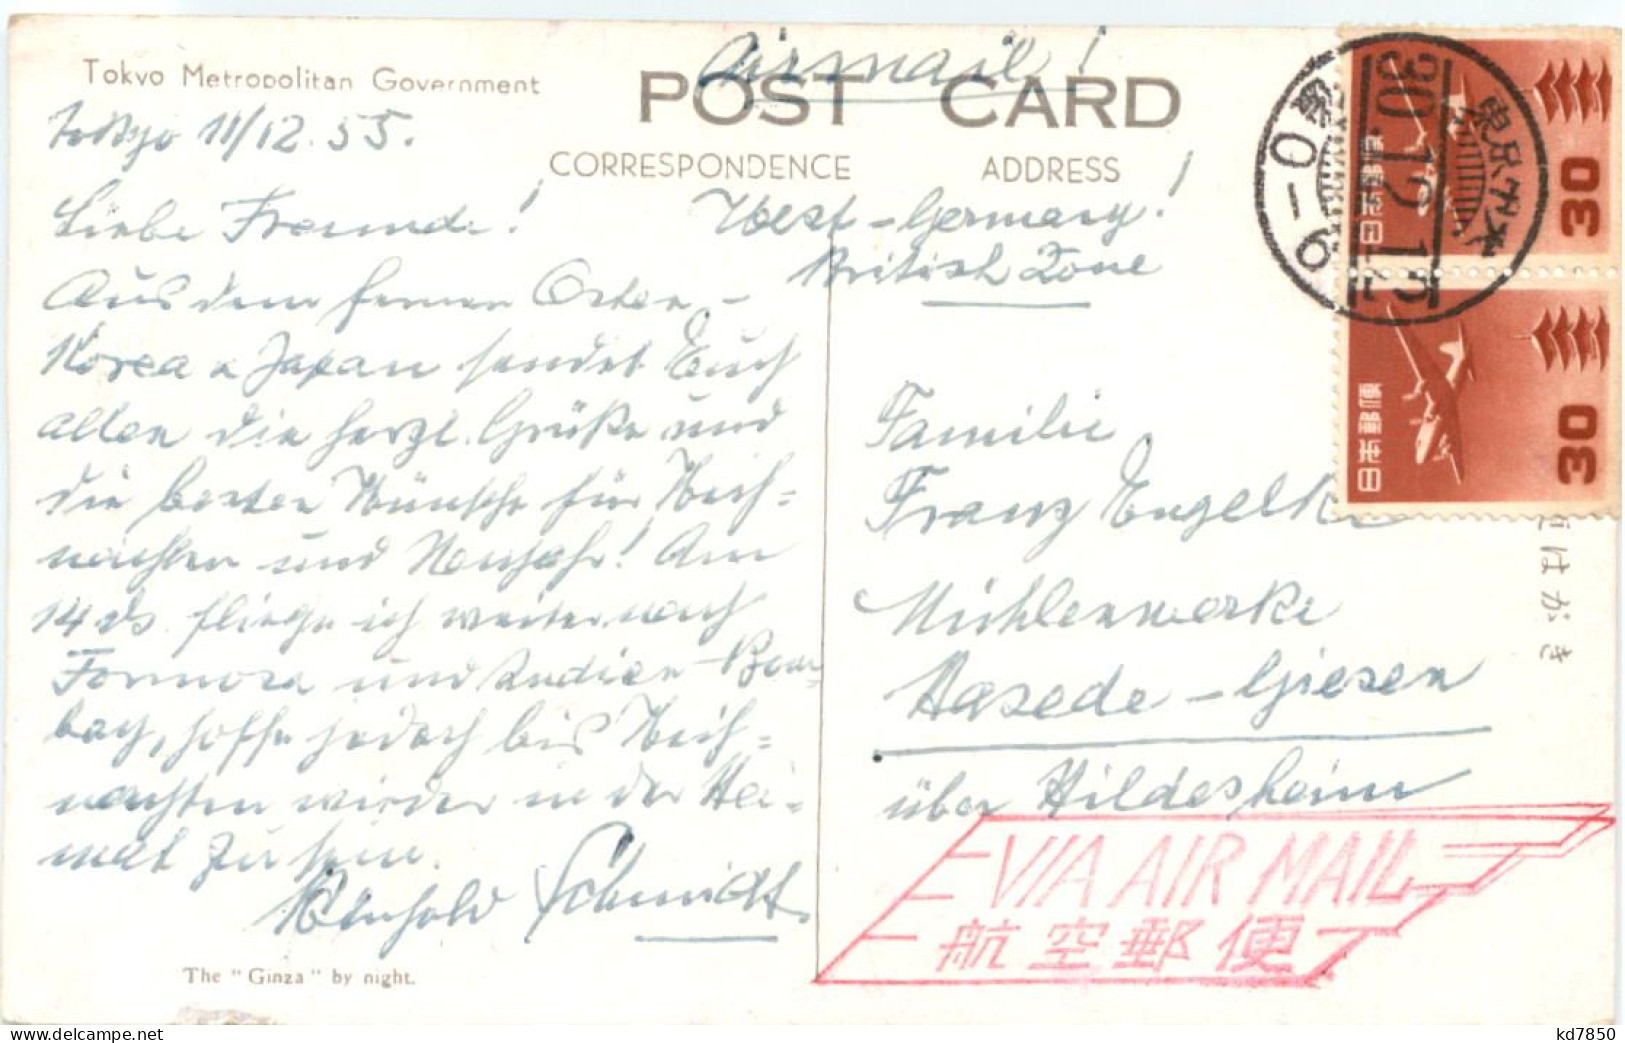 Tokyo Metropolitan Government
Airmail!
POST CARD
CORRESPONDENCE ADDRESS
Tokyo 11/12.55.
Liebe Freunde!
Aus dem fernen Osten -
Korea u Japan sendet Euch
allen die herzl. Grüße und
die besten Wünsche für Weih=
nachten und Neujahr! Am
14 ds. fliege ich weiter nach
Formosa und Indien - Bom=
bay, hoffe jedoch bis Weih=
nachten wieder in der Hei=
mat zu sein.
Reinhold Schmidt
The "Ginza" by night.
West-Germany!
British Zone
Familie
Franz Engelk
Mühlenwerke
Hasede-Giesen
über Hildesheim
VIA AIR MAIL
航空郵便
30
日本郵便
30
日本郵便
30.12.12
0-6
東京
便はがき
delcampe.net
kd7850